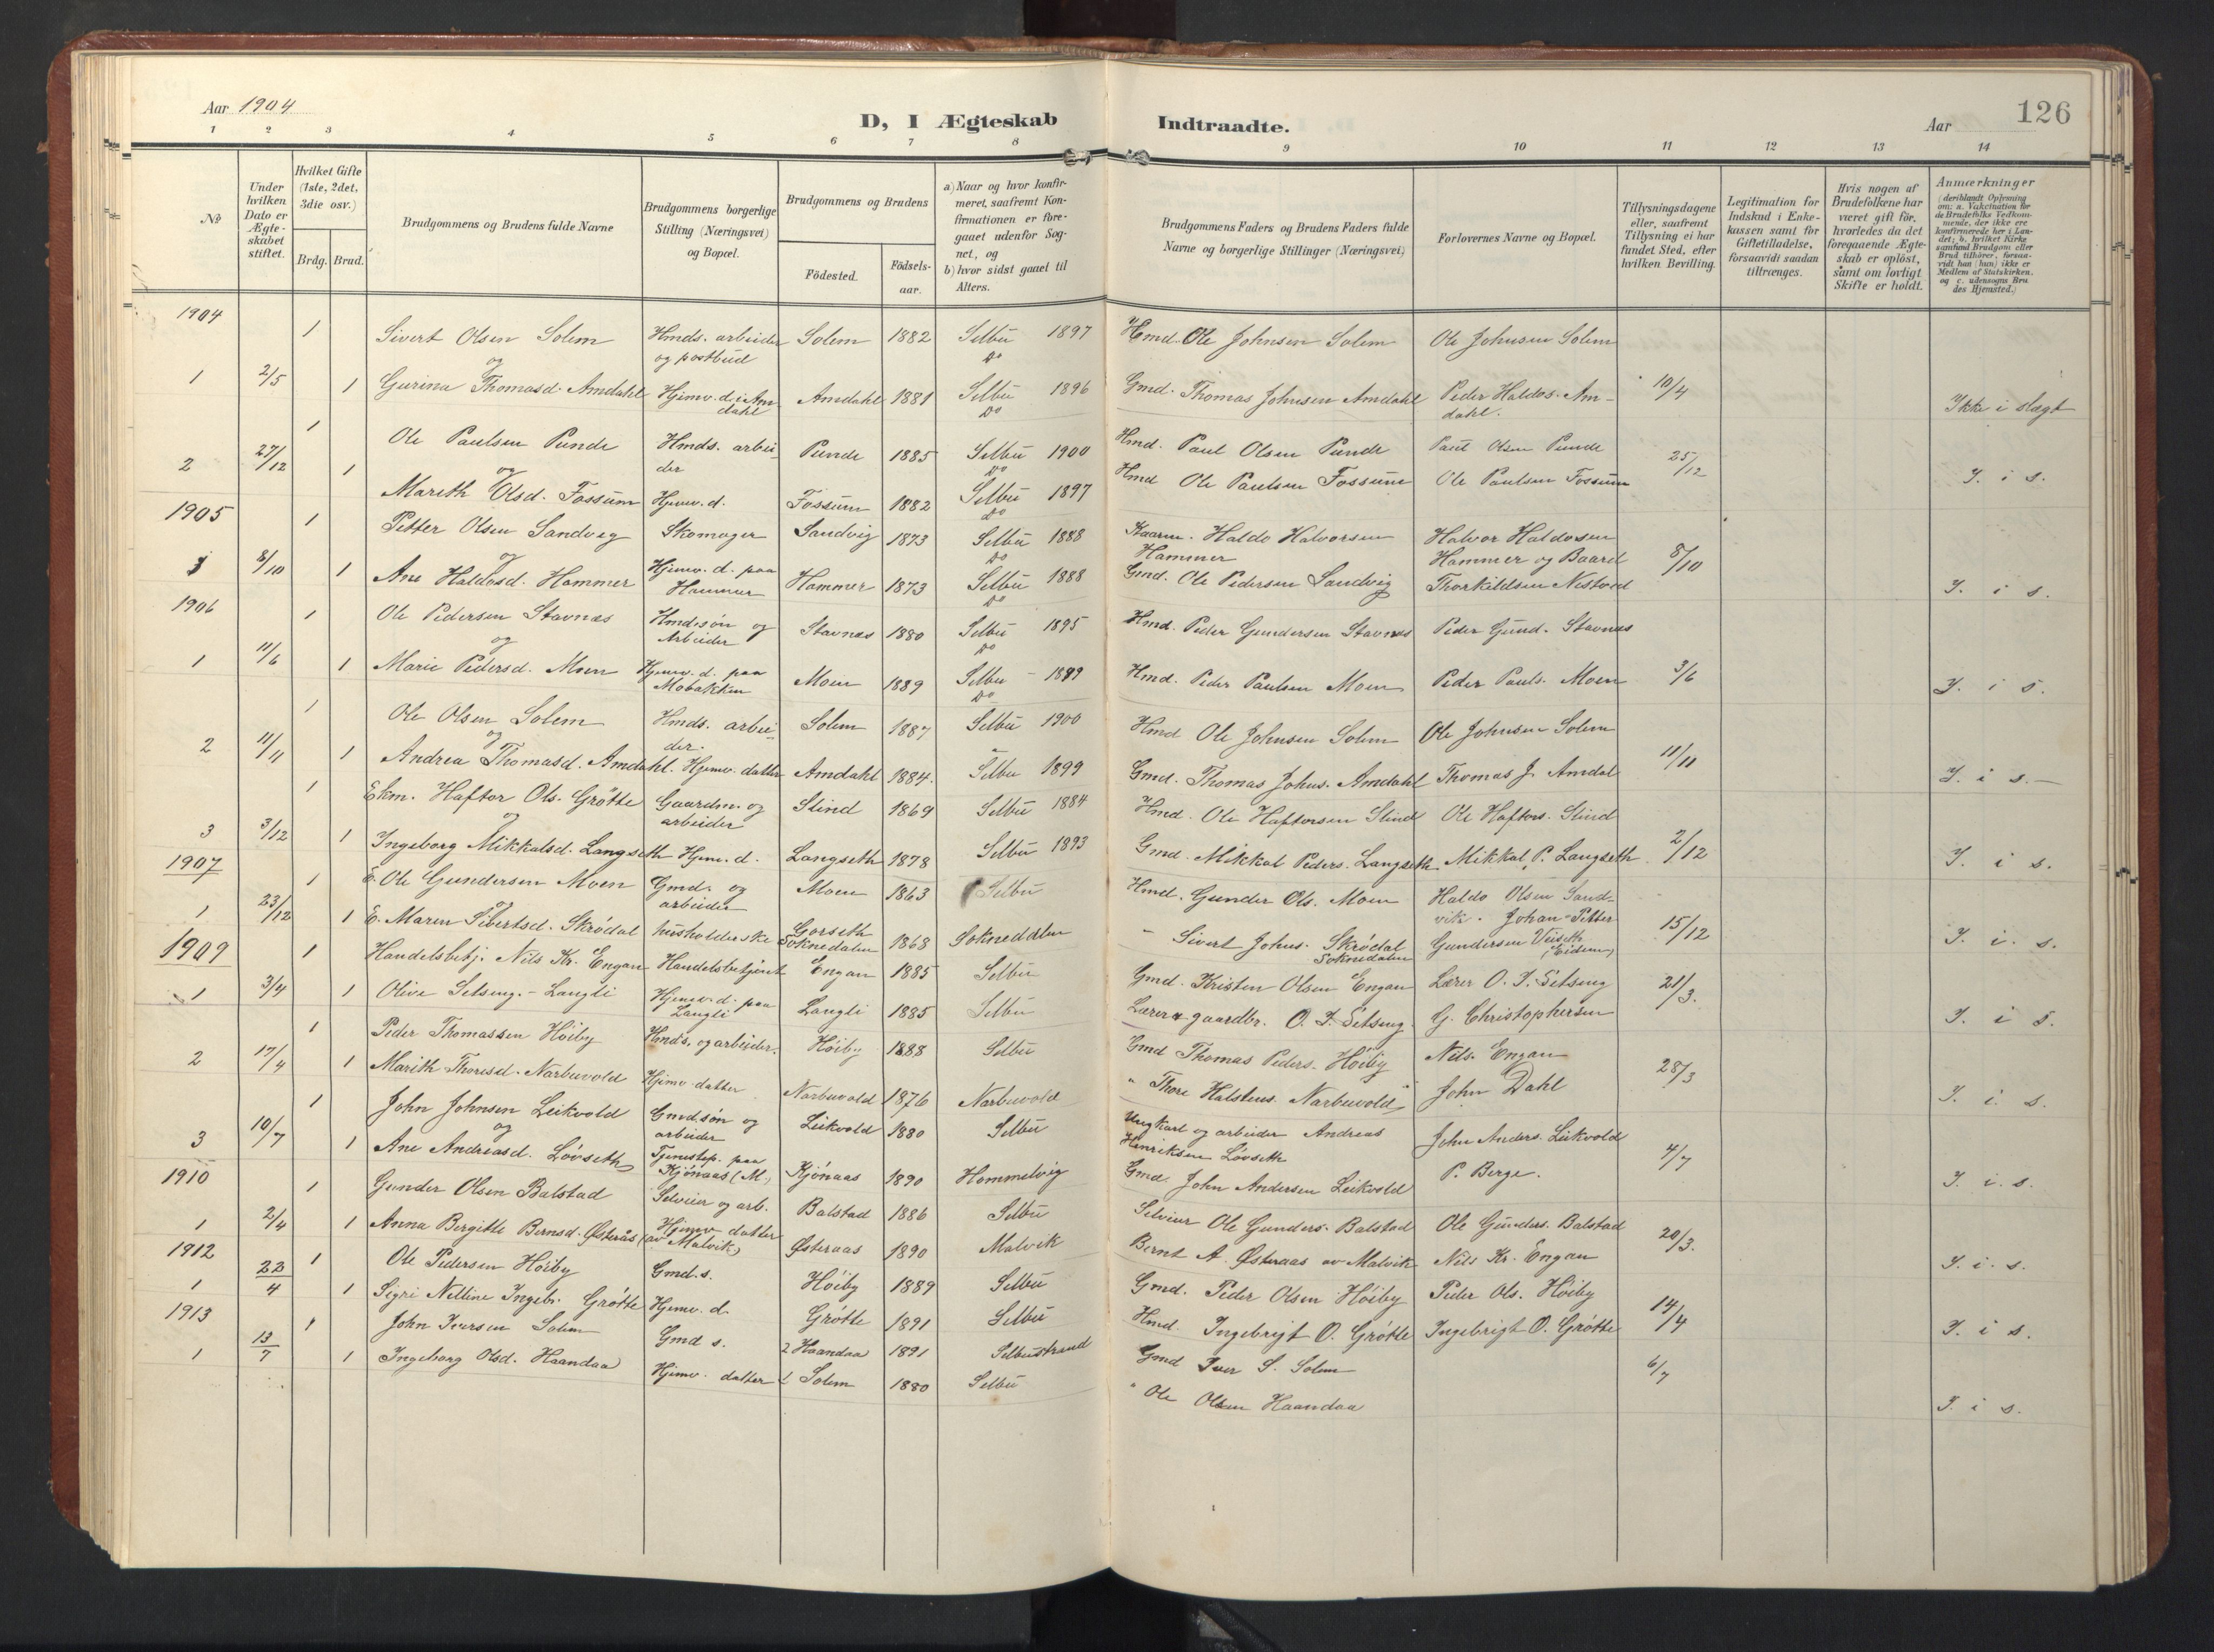 Aar 1904
D, I Ægteskab Indtraadte.
Aar
126
1 2 3 4 5 6 7 8 9 10 11 12 13 14
No
Under hvilken Dato er Ægteskabet stiftet.
Hvilket Gifte (1ste, 2det, 3die osv.)
Brdg. Brud.
Brudgommens og Brudens fulde Navne
Brudgommens borgerlige Stilling (Næringsvei) og Bopæl.
Brudgommens og Brudens
Födested.
Födselsaar.
a) Naar og hvor konfirmeret, saafremt Konfirmationen er foregaaet udenfor Sognet, og
b) hvor sidst gaaet til Alters.
Brudgommens Faders og Brudens Faders fulde Navne og borgerlige Stillinger (Næringsvei)
Forlovernes Navne og Bopæl.
Tillysningsdagene eller, saafremt Tillysning ei har fundet Sted, efter hvilken Bevilling.
Legitimation for Indskud i Enkekassen samt for Giftetilladelse, forsaavidt saadan tiltrænges.
Hvis nogen af Brudefolkene har været gift för, hvorledes da det foregaaende Ægteskab er oplöst, samt om lovligt Skifte er holdt.
Anmærkninger (deriblandt Oplysning om: a. Vakcination for de Brudefolks Vedkommende, der ikke ere konfirmerede her i Landet; b. hvilket Kirkesamfund Brudgom eller Brud tilhörer, forsaavidt han (hun) ikke er Medlem af Statskirken, og c. udensogns Brudes Hjemsted.)
1904
1 Sivert Olsen Solem Hmds. arbeider og postbud Solem 1882 Selbu 1897 Do Hmd. Ole Johnsen Solem Ole Johnsen Solem
og
1 2/5 1 Gurina Thomasd. Amdahl Hjemv. d. i Amdahl Amdahl 1881 Selbu 1896 Do Gmd. Thomas Johnsen Amdahl Peder Haldos. Amdahl. 10/4 Ikke i slægt
1 Ole Paulsen Punde Hmds. arbeider Punde 1885 Selbu 1900 Do Hmd. Paul Olsen Punde Paul Olsen Punde
og
2 27/12 1 Marith Olsd. Fossum Hjemv. d. Fossum 1882 Selbu 1897 Do Hmd Ole Paulsen Fossum Ole Paulsen Fossum 25/12 I. i s.
1905
1 Petter Olsen Sandvig Skomager Sandvig 1873 Selbu 1888 Do Kaarm. Haldo Halvorsen Hammer Halvor Haldorsen Hammer og Baard
og
1 8/10 1 Ane Haldosd. Hammer Hjemv. d. paa Hammer Hammer 1873 Selbu 1888 Do Gmd. Ole Pedersen Sandvig Thorkildsen Nestvold 8/10 I. i s.
1906
1 Ole Pedersen Stavnas Hmdssøn og Arbeider Stavnas 1880 Selbu 1895 Do Hmd. Peder Gundersen Stavnas Peder Gund. Stavnas
og
1 11/6 1 Marie Pedersd. Moen Hjemv. d. paa Mobakken Moen 1889 Selbu - 1889 Do Hmd. Peder Paulsen Moen Peder Pauls. Moen 3/6 I. i s.
1 Ole Olsen Solem Hmds. arbeider. Solem 1887 Selbu 1900 Hmd Ole Johnsen Solem Ole Johnsen Solem
og
2 11/11 1 Andrea Thomasd. Amdahl. Hjemv. datter Amdahl 1884. Selbu 1899 Gmd. Thomas Johns. Amdahl Thomas J. Amdal 11/11 I. i s.-
1 Ekm. Haftor Ols. Grøtte Gaardm. og arbeider Slind 1869 Selbu 1884 Hmd. Ole Haftorsen Slind Ole Haftors. Slind
og
3 3/12 1 Ingeborg Mikkalsd. Langseth Hjem. d. Langseth 1878 Selbu 1893 Gmd. Mikkal Peders. Langseth Mikkal P. Langseth 2/12 I. i s.
1907
1 E. Ole Gundersen Moen Gmd. og arbeider Moen 1863 Selbu Hmd. Gunder Ols. Moen Haldo Olsen Sandvik. Johan Petter
1 23/12 1 E. Maren Sivertsd. Skrødal husholderske Gorseth Soknedalen 1868 Soknedalen - Sivert Johns. Skrødal Soknedalen Gundersen Veiseth (Eidem) 15/12 I. i. s.
1909
1 Handelsbetj. Nils Kr. Engan Handelsbetjent Engan 1885 Selbu Gmd. Kristen Olsen Engan Lærer O. J. Setseng
1 3/4 1 Olive Setseng - Langli Hjemv. d. paa Langli Langli 1885 Selbu Lærer & gaardbr. O. J. Setseng. G. Christophersen 21/3. I. i s.
1 Peder Thomassen Høiby Hmds. og arbeider. Høiby 1888 Selbu Gmd Thomas Peders. Høiby Nils Engan
2 17/4 1 Marith Thoresd. Narbuvold Hjemv. datter Narbuvold 1876 Narbuvold " Thore Halstens. Narbuvold John Dahl 28/3 I. i. s.
1 John Johnsen Leikvold Gmdssøn og arbeider Leikvold 1880 Selbu Ungkarl og arbeider Andreas Henriksen Løvseth John Anders. Leikvold
og
3 10/7 1 Ane Andreasd. Løvseth Tjenestep. paa Kjønaas (M.) Kjønaas 1890 Hommelvig Gmd. John Andersen Leikvold P. Berge. 4/7 I. i. s.
1910
1 Gunder Olsen Balstad Selveier og arb. Balstad 1886 Selbu Selveier Ole Gunders. Balstad Ole Gunders. Balstad
1 2/4 1 Anna Bergitte Berntsd. Østerås Hjemv. datter (av Malvik) Østeraas 1890 Malvik Bernt A. Østeraas av Malvik Nils Kr. Engan 20/3. I. i. s.
1912
1 Ole Pedersen Høiby Gmd. s. Høiby 1889 Selbu Gmd. Peder Olsen Høiby Peder Ols. Høiby
1 22/4 1 Sigri Nilline Ingebr. Grøtte Hjemv. d. Grøtte 1891 Selbu Hmd. Ingebrigt O. Grøtte Ingebrigt O. Grøtte 14/4 I. i s.
1913
1 John Iversen Solem Gmd s. 2 Haandaa 1891 Selbustrand Gmd Iver S. Solem
1 13/7 1 Ingeborg Olsd. Haandaa Hjemv. datter 1 Solem 1880 Selbu " Ole Olsen Haandaa 6/7 I. i s.